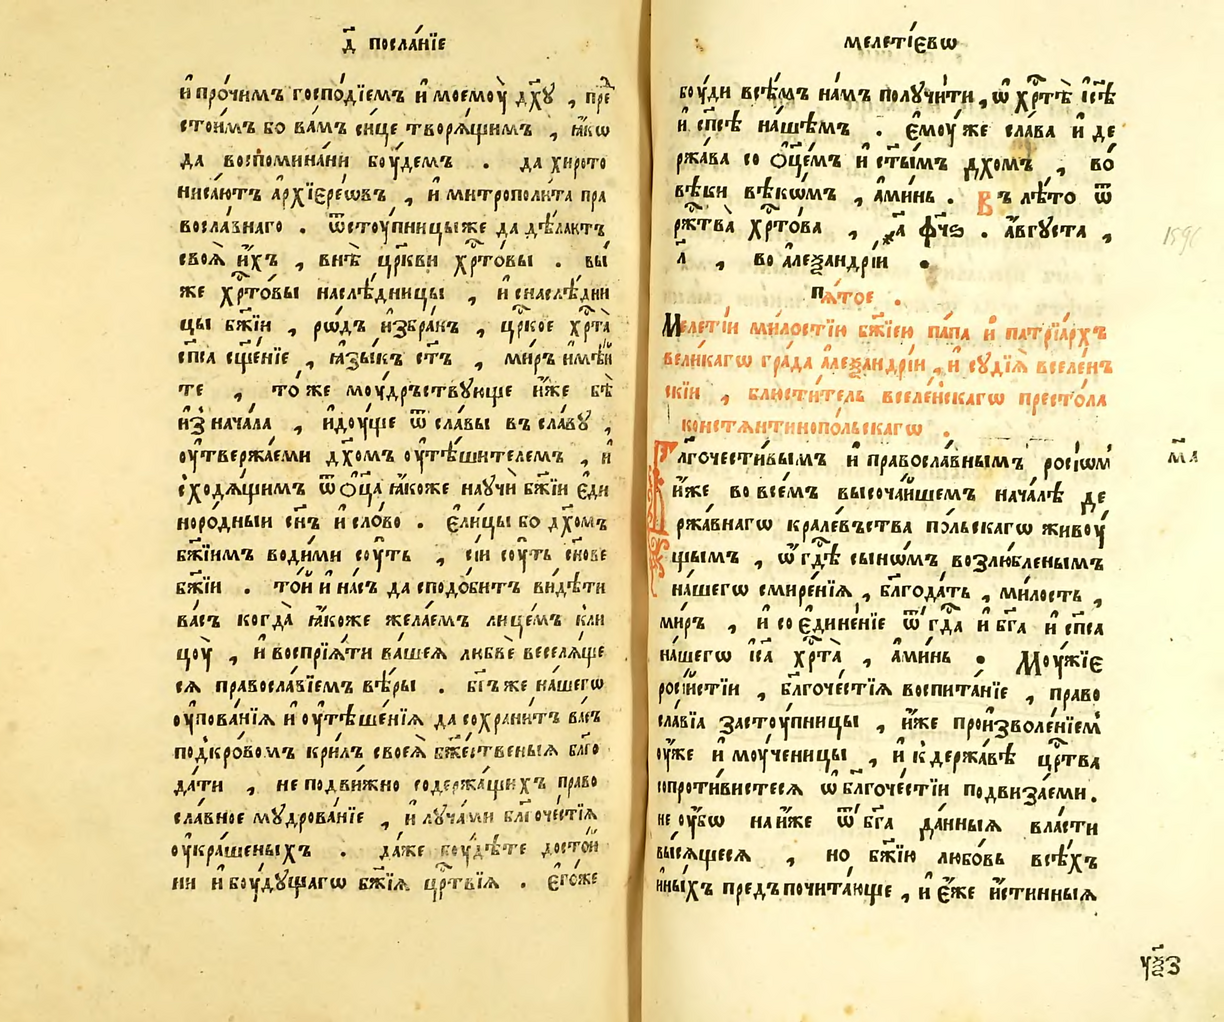 д҃ посла́нїе
и҆ про́чимъ госпо́дїемъ и҆ моемоу̀ дх҃ꙋ , пре
стои́мъ бо ва́мъ си́це творѧ́щимъ , ꙗ҆́кѡ
да воспомина́ни боу́демъ . да хирото
нисаю́тъ а҆рхїере́ѡвъ , и҆ митрополи́та пра
восла́внаго . ѿстоу́пницыже да дѣ́лаютъ
своѧ̀ и҆́хъ , внѣ̀ цр҃кви хр҃то́вы . вы́
же хр҃то́вы наслѣ́дницы , и҆ снаслѣ́дни
цы бж҃їи , рѡ́дъ и҆збра́нъ , цр҃кое хр҃та̀
сп҃са сщ҃е́нїе , ꙗ҆зы́къ ст҃ъ , ми́ръ и҆мѣ́и
те , то́ же моу́дръствꙋюще и҆́же бѣ̀
и҆з̾ нача́ла , и҆доу́ще ѿ сла́вы въ сла́вꙋ ,
оу҆твержа́еми дх҃омъ оу҆тѣ́шителемъ , и҆
сходѧ́щимъ ѿ ѻ҆ц҃а ꙗ҆́коже наꙋчѝ бж҃їи є҆ди
норо́дныи сн҃ъ и҆ сло́во . є҆ли́цы бо дх҃омъ
бж҃їимъ води́ми соу́ть , сїи соу́ть сн҃ове
бж҃їи . то́й и҆ на́съ да сподо́битъ ви́дѣти
ва́съ когда̀ ꙗ҆́коже жела́емъ лице́мъ к̾ли
цоу̀ , и҆ воспрїѧ́ти ва́шеѧ любвѐ веселѧ́ще
сѧ правосла́вїемъ вѣ́ры . бг҃ъ же на́шегѡ
оу҆пова́нїѧ и҆ оу҆тѣше́нїѧ да сохрани́тъ ва́съ
под̾кро́вомъ кри́лъ своеѧ̀ бж҃е́ственыѧ бл҃го
да́ти , не подви́жно содержа́щихъ право
сла́вное мꙋдрова́нїе , и҆ лꙋча́ми бл҃гоче́стїѧ
оу҆кра́шеныхъ . да́же боу́дѣте досто́и
ни и҆ боу́дꙋщагѡ бж҃їѧ цр҃твїѧ . є҆го́же
меле́тїєвѡ
боу́ди всѣ́мъ на́мъ полꙋчи́ти , ѡ҆ хр҃тѣ̀ і҆с҃ѣ
и҆ сп҃сѣ на́шѣмъ . є҆моу́ же сла́ва и҆ де
ржа́ва со ѻ҆ц҃е́мъ и҆ ст҃ы́мъ дх҃омъ , во́
вѣ́ки вѣ́кѡмъ , а҆ми́нь . Въ лѣ́то ѿ
рж҃тва̀ хр҃то́ва , ҂а҃ ф҃чѕ . а҆́вгꙋста ,
л҃ , во а҆леѯандрі́и .
пѧ́тое .
Меле́тїи ми́лостїю бж҃їею па́па и҆ патрїа́рхъ
вели́кагѡ гра́да а҆леѯандрі́и , и҆ сꙋдїѧ̀ вселе́н
скїи , блюсти́тель вселе́нскагѡ престо́ла
констѧнтинопо́льскагѡ .
Бл҃гочести́вымъ и҆ правосла́внымъ росі́ѡм
и҆́же во всѐмъ высоча́йшемъ нача́лѣ де
ржа́внагѡ крале́въства по́льскагѡ живоу́
щымъ , ѡ҆ гд҃ѣ сынѡ́мъ возлю́бленымъ
на́шегѡ смире́нїѧ , бл҃года́ть , ми́лость ,
ми́ръ , и҆ со є҆дине́нїе ѿ гд҃а и҆ бг҃а и҆ сп҃са
на́шегѡ і҆с҃а хр҃та̀ , а҆ми́нь . Моу́жїє
росі́йстїи , бл҃гоче́стїѧ воспита́нїе , право
сла́вїа застоу́пницы , и҆́же произволе́нїем
оу҆́же и҆ моу́ченицы , и҆ к̾держа́вѣ цр҃тва
сопроти́вистесѧ ѡ҆ бл҃гоче́стїи подвиза́еми .
не оу҆́бѡ на и҆́же ѿ бг҃а да́нныѧ вла́сти
высѧ́щесѧ , но бж҃їю любо́вь всѣ́хъ
и҆ны́хъ предъпочита́юще , и҆ є҆́же и҆́стинныѧ
м҃а
1596
у҃ѯз